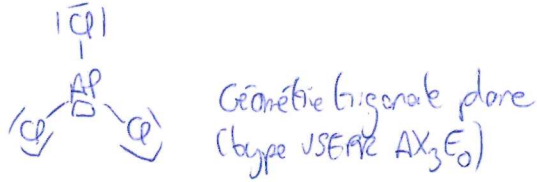 Cl
Al
Cl Cl
Géométrie trigonale plane
(type VSEPR AX₃E₀)